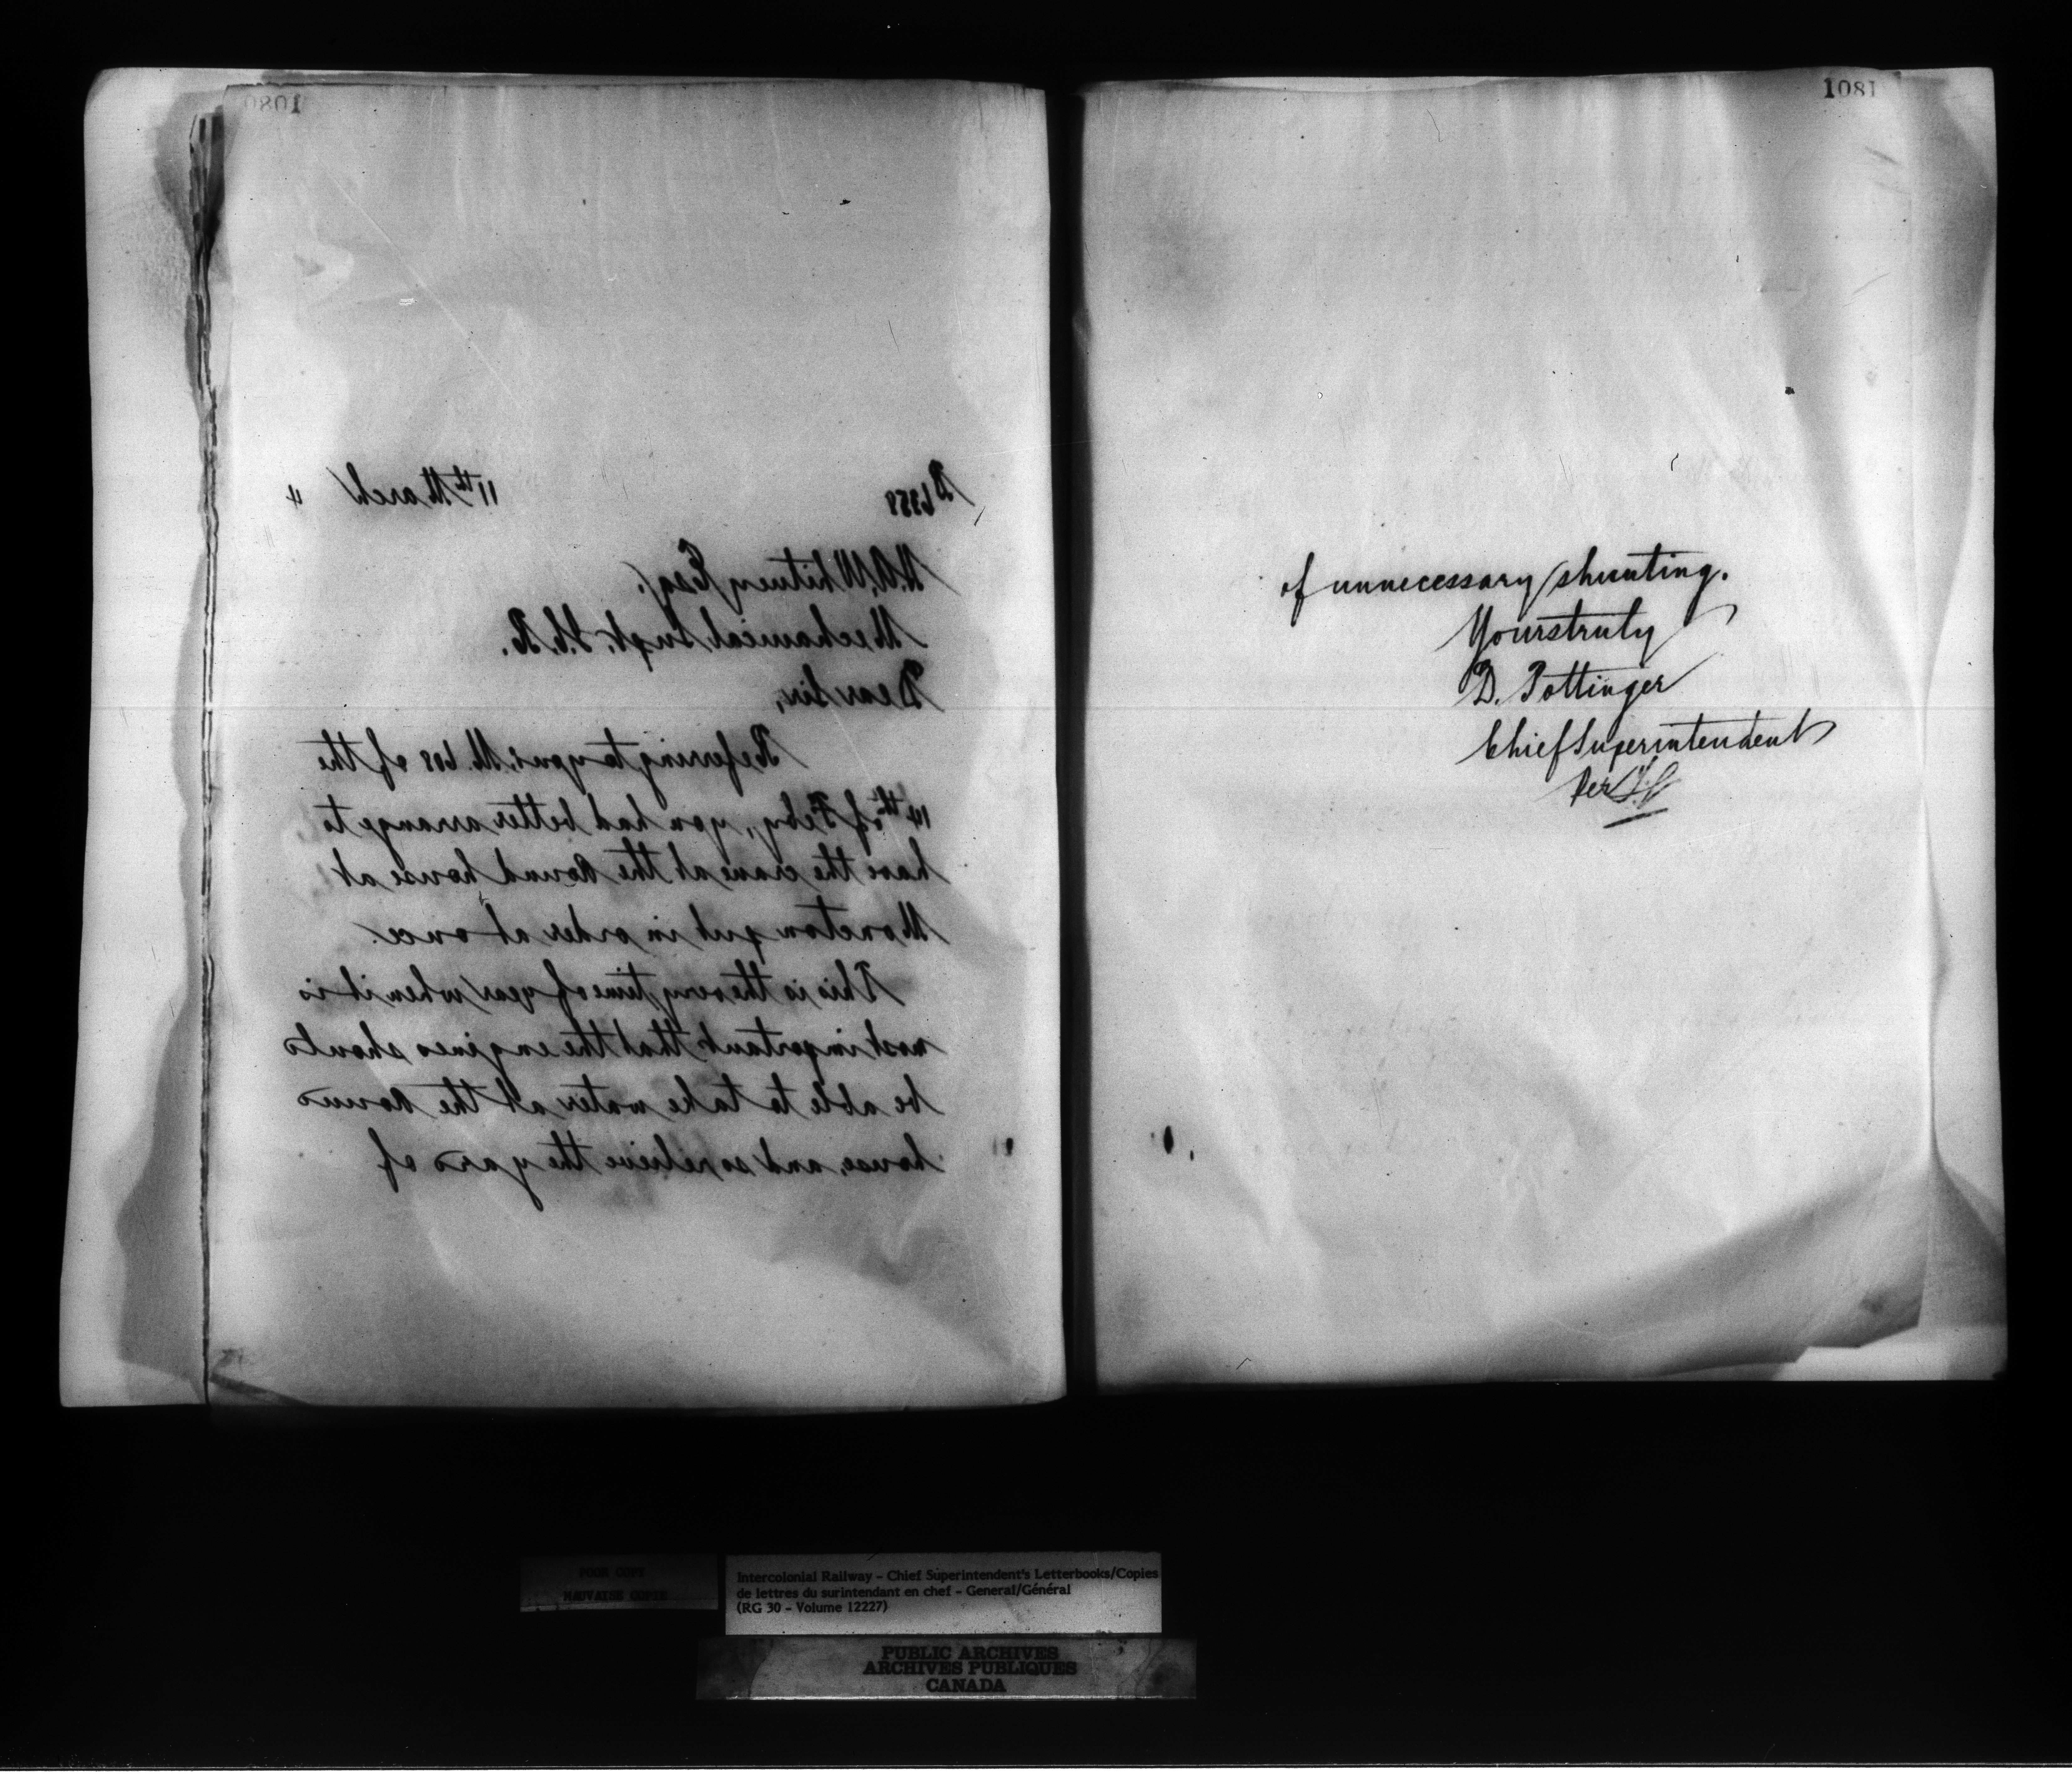 1080
D 6358 11th March 4
H.A. Whitney Esq.
Mechanical Supt. I.C.R.
Dear Sir,
Referring to yours M. 608 of the
14th of Feby., you had better arrange to
have the crane at the Round house at
Moncton put in order at once.
This is the very time of year when it is
most important that the engines should
be able to take water at the Round
house, and so relieve the yard of
1081
of unnecessary shunting.
Yours truly
D. Pottinger
Chief Superintendent
Per
POOR COPY
MAUVAISE COPIE
Intercolonial Railway - Chief Superintendent's Letterbooks/Copies
de lettres du surintendant en chef - General/Général
(RG 30 - Volume 12227)
PUBLIC ARCHIVES
ARCHIVES PUBLIQUES
CANADA